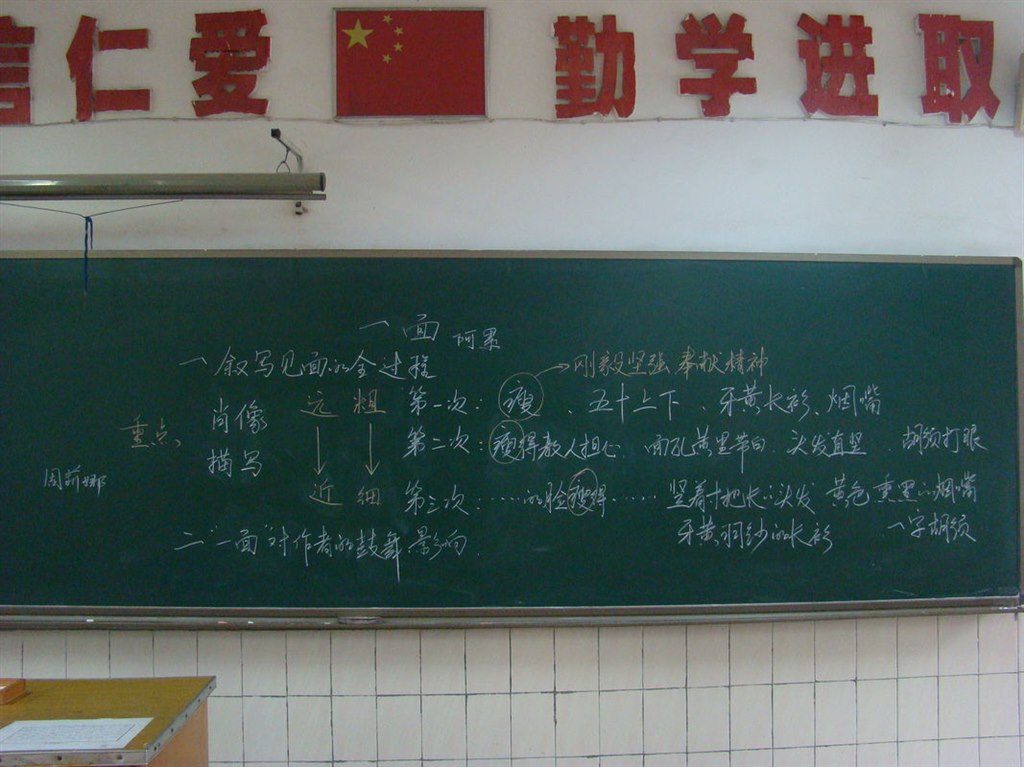 信仁爱 勤学进取
一面 阿累
一 叙写见面的全过程
刚毅坚强 奉献精神
肖像 远 粗 第一次：瘦、五十上下、牙黄长衫、烟嘴
重点
描写 第二次：瘦得教人担心 面孔黄里带白、头发直竖、胡须打眼
周莉娜
近 细 第三次：……的脸瘦得…… 竖着寸把长的头发 黄色熏黑的烟嘴
牙黄羽纱的长衫 一字胡须
二"一面"对作者的鼓舞、影响.